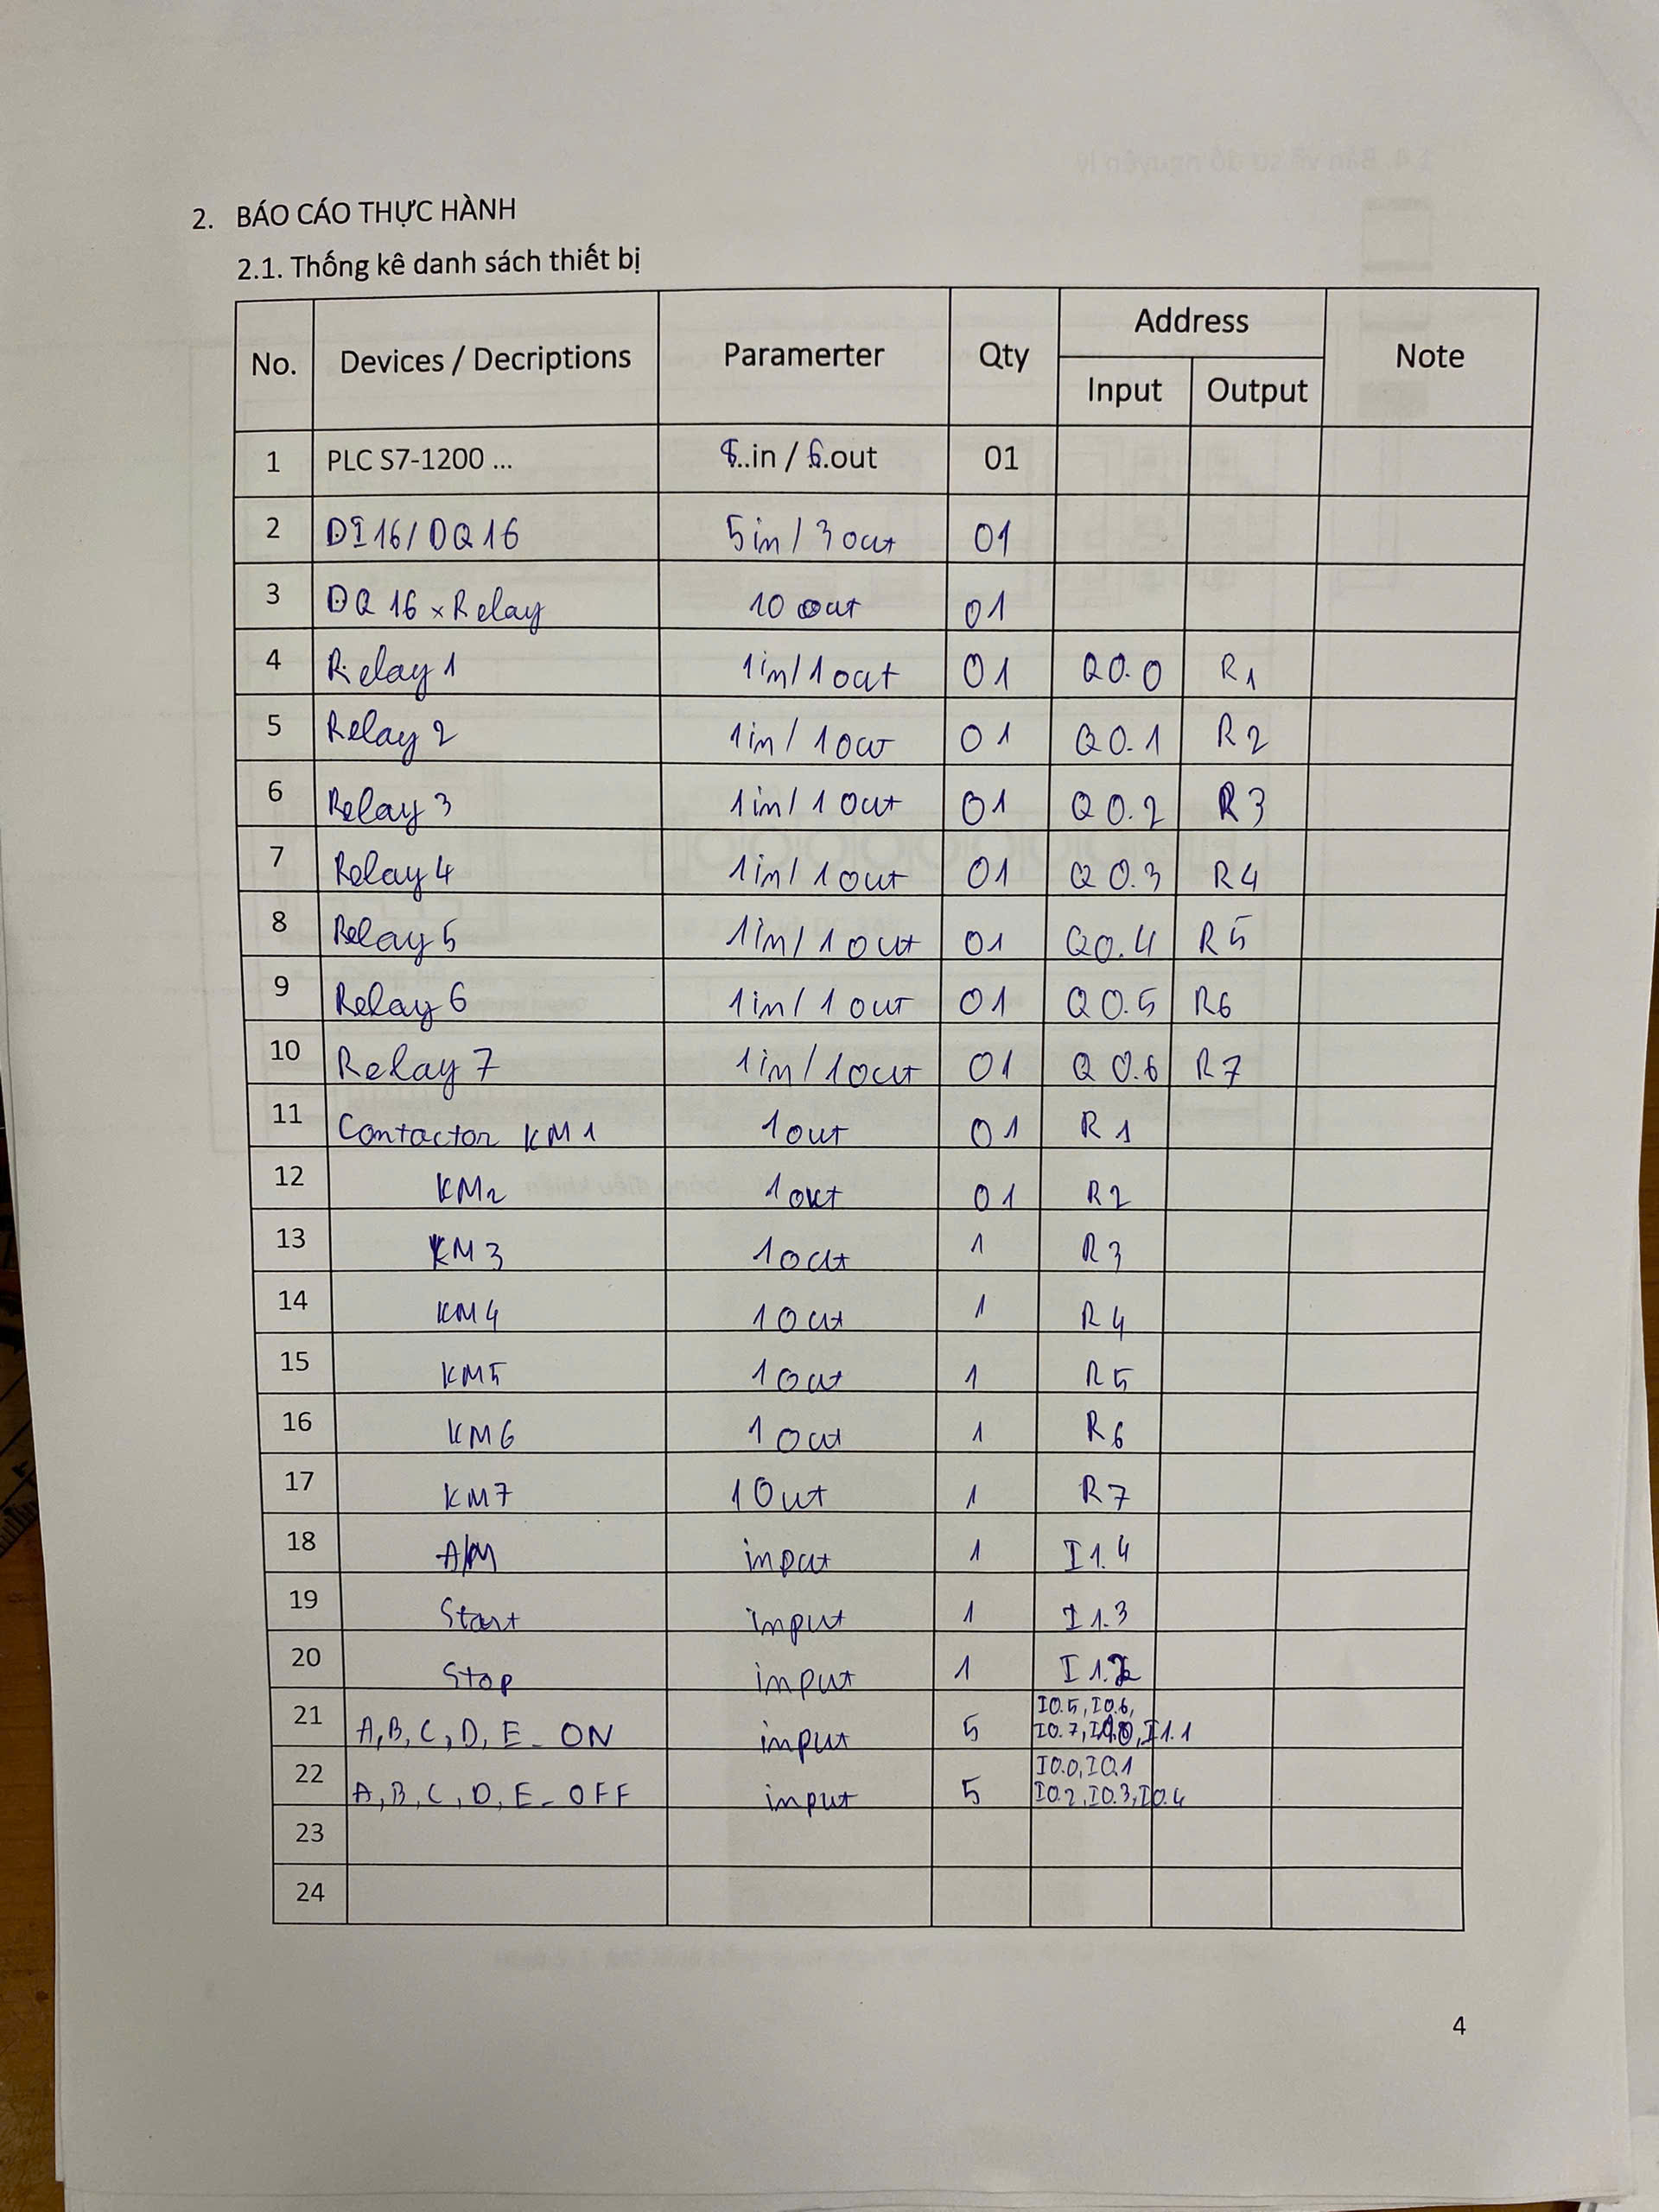 2. BÁO CÁO THỰC HÀNH
2.1. Thống kê danh sách thiết bị
No. Devices / Decriptions Paramerter Qty Address Note
Input Output
1 PLC S7-1200 ... ..in / 6.out 01
2 DI16/DQ16 5in/3out 01
3 DQ 16 x Relay 10 out 01
4 Relay 1 1in/1out 01 Q0.0 R1
5 Relay 2 1in/1out 01 Q0.1 R2
6 Relay 3 1in/1out 01 Q0.2 R3
7 Relay 4 1in/1out 01 Q0.3 R4
8 Relay 5 1in/1out 01 Q0.4 R5
9 Relay 6 1in/1out 01 Q0.5 R6
10 Relay 7 1in/1out 01 Q0.6 R7
11 Contactor KM1 1out 01 R1
12 KM2 1out 01 R2
13 KM3 1out 1 R3
14 KM4 1out 1 R4
15 KM5 1out 1 R5
16 KM6 1out 1 R6
17 KM7 1out 1 R7
18 A/M input 1 I1.4
19 Start input 1 I1.3
20 Stop input 1 I1.2
21 A,B,C,D,E_ON input 5 I0.5,I0.6,
I0.7,I1.0,I1.1
22 A,B,C,D,E_OFF input 5 I0.0,I0.1
I0.2,I0.3,I0.4
23
24
4